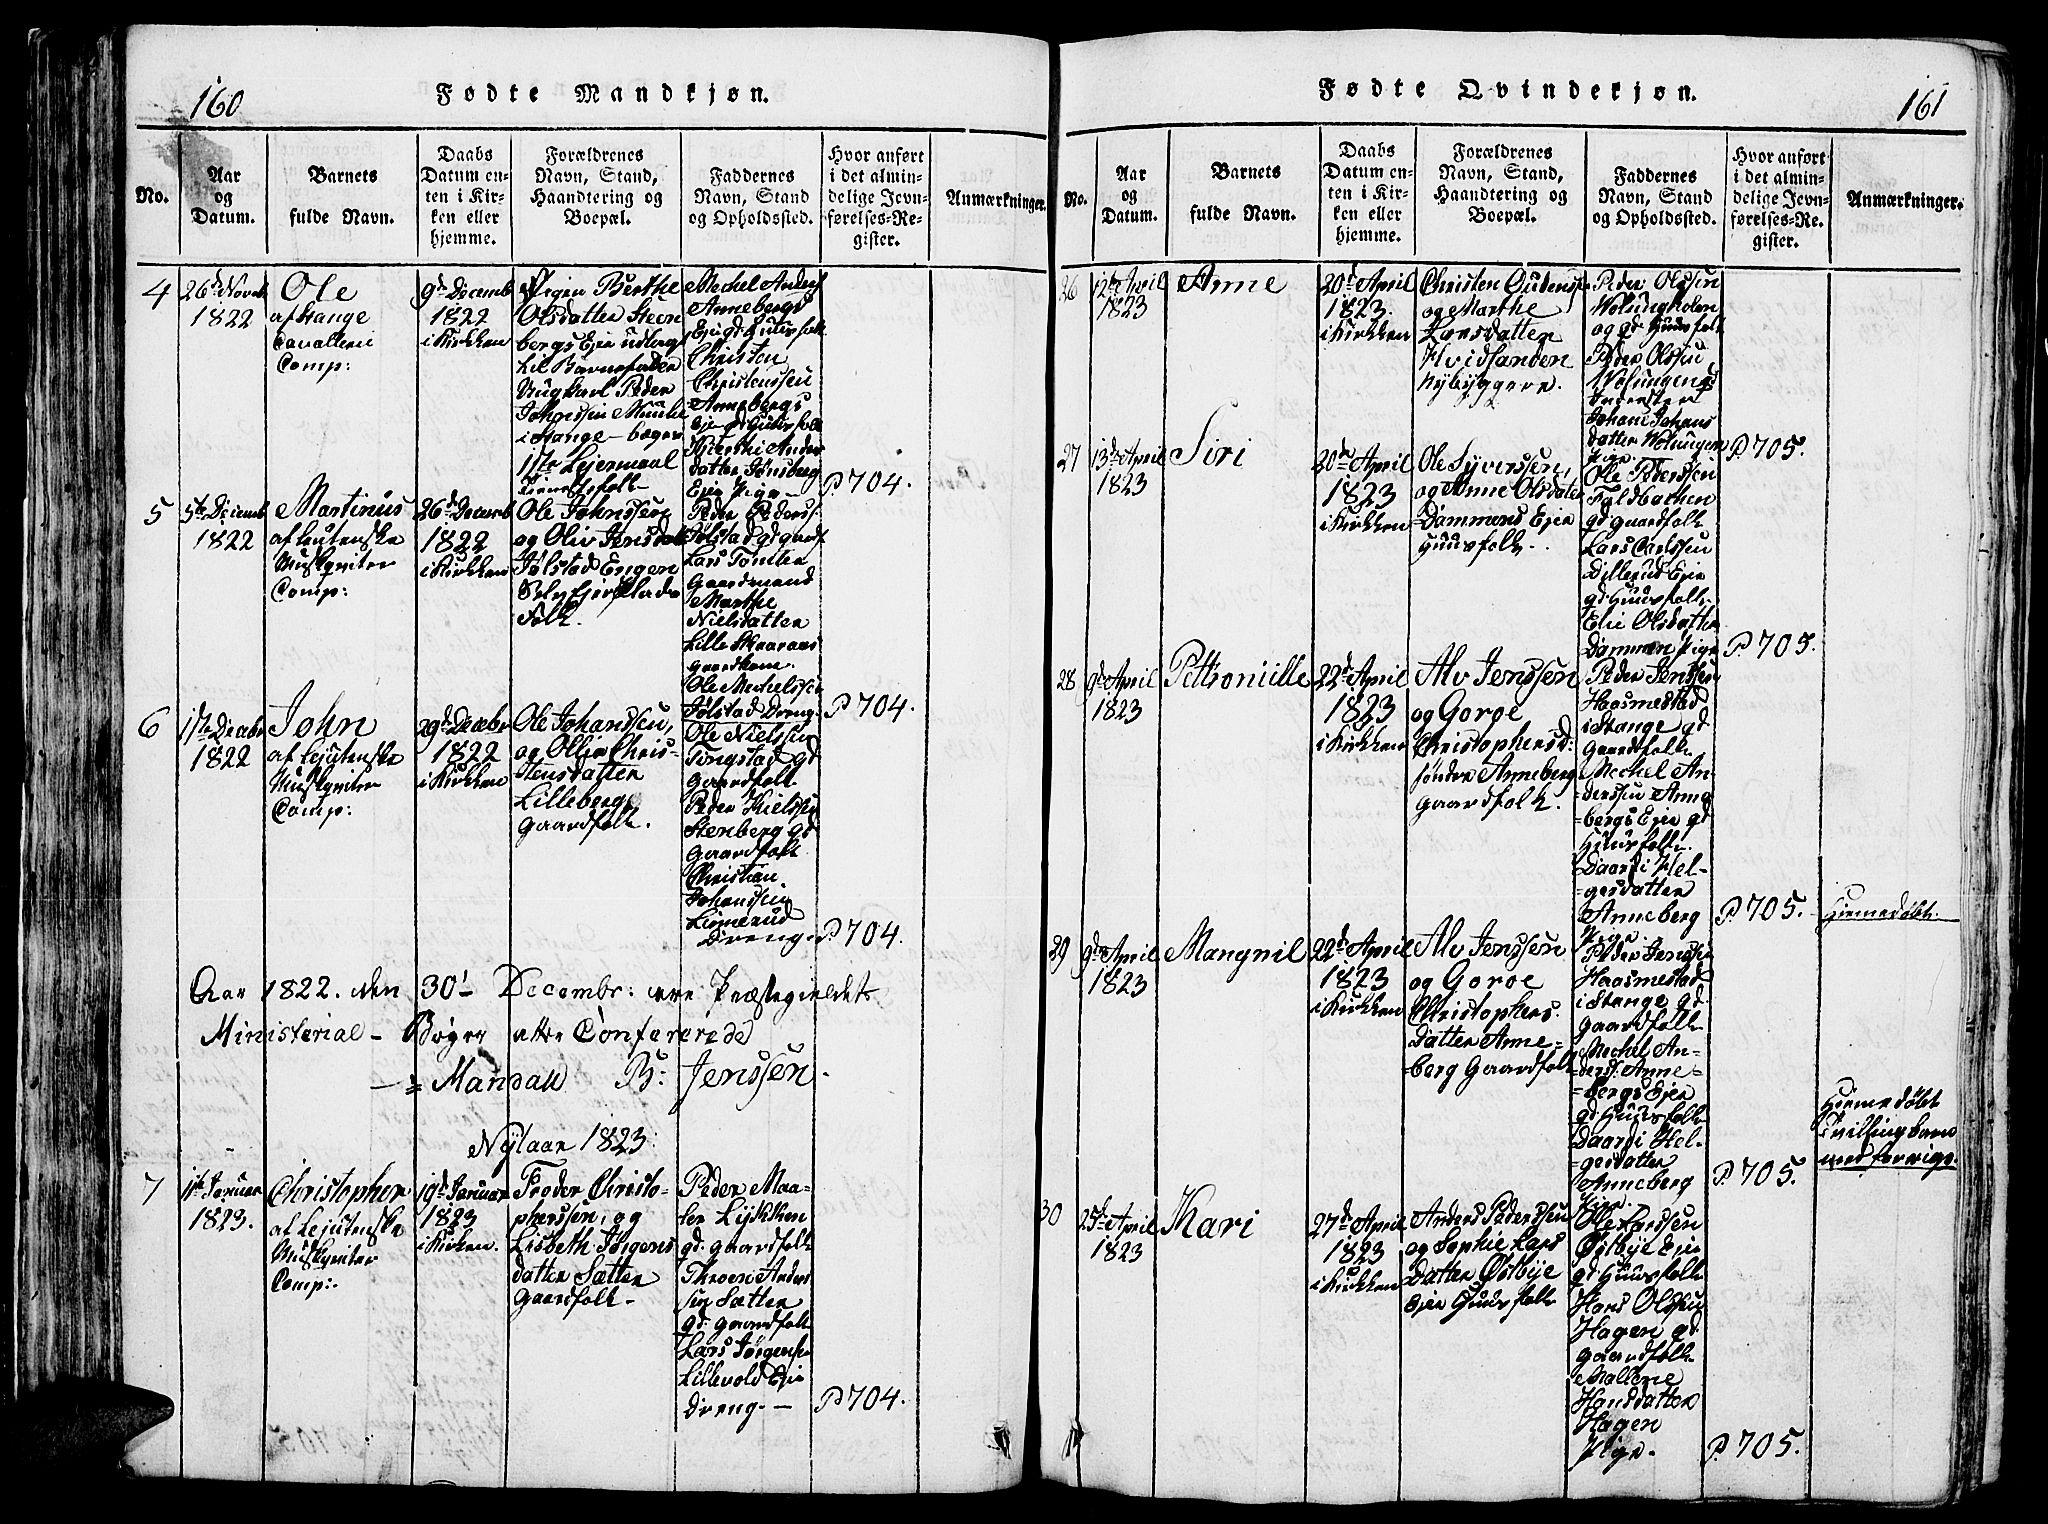 160
Fødte Mandkjøn.
No.
Aar
og
Datum.
Barnets
fulde Navn.
Daabs
Datum en-
ten i Kir-
ken eller
hjemme.
Forældrenes
Navn, Stand,
Haandtering og
Boepæl.
Faddernes
Navn, Stand
og Opholdssted.
Hvor anført
i det almin-
delige Jevn-
førelses-Re-
gister.
Anmærkninger.
4
26de Novemb
1822
Ole
af Stange
Cavallerie
Comp:
9de Decemb
1822
i Kirkken
Pigen Berthe
Olsdatter Steen
bergs Eje udlagt
til Barnefader
Ungkarl Peder
Johnssen
i Stange
1ste Lejermaal
Mechel Anders
Annebergs
Eje gd Huusfolk
Christen
Christenssen
Annebergs
Eje gd Huusfolk
Kierstie Anders
datter Jønsberg
Eje Pige
P. 704.
5
5te Decemb
1822
Martinus
af Leutenske
Muskeniter
Comp:
26de Decemb
1822
i Kirkken
Ole Johnssen
og Oliv Jensdatt
Jølstad Engen
Folk.
Peder Pederss:
Jølstad gd gaardf
Lars Tomter
Gaardmand
Marthe
Nielsdatter
Lille Skaaraas
Gaardkone.
Ole Mechelssen
Jølstad Dreng
P. 704.
6
1ste Decbr
1822
John
af Lejutenske
Muskeniter
Comp:
29de Decbr
1822
i Kirkken
Ole Johanssen,
og Ollia Chris-
tensdatter
Lilleberg
Gaardfolk.
Ole Nielssen
Tongstad gd
Gaardfolk
Peder Nielssen
Stenberg gd
Gaardfolk
Christian
Johanssen
Lismerud
Dreng
P. 704.
Aar 1822. den 30' Decembr: ere Præstegieldets
Ministerial-Bøger atter Confererede
Mandall B: Jenssen.
Nytaar 1823:
7
11te Januar
1823.
Christopher
af Lejutenske
Muskeniter
Comp:
19de Januar
1823
i Kirken.
Froder Christo-
pherssen, og
Lisbeth Jørgens
datter Sætter
Gaardfolk
Peder Maa-
ler Lykken
gd. gaardfolk
Thrven Anders
sen Sætter
gd. gaardfolk
Lars Jørgens
Lillevold Eje
Dreng.
P. 704.
161
Fødte Qvindekjøn.
No.
Aar
og
Datum.
Barnets
fulde Navn.
Daabs
Datum en-
ten i Kir-
ken eller
hjemme.
Forældrenes
Navn, Stand,
Haandtering og
Boepæl.
Faddernes
Navn, Stand
og Opholdssted.
Hvor anført
i det almin-
delige Jevn-
førelses-Re-
gister.
Anmærkninger.
26
12te April
1823
Anne
20de April
1823.
i Kirkken
Christen Gudenss
og Marthe
Larsdatter
Hvidsanden
Nybyggere.
Peder Olssen
Wolungholen
og gd Huusfolk
Peder Olssen
Wolungen gd
Inderster
Johane Johans
datter Wolungen
Pige
P. 705.
27
13de April
1823
Siri
20de April
1823
i Kirkken
Ole Syverssen,
og Anne Olsdatter
Dammens Ejer
Huusfolk.
Ole Pederssen
Faldbacken
gd gaardfolk
Lars Carlssen
Dillerud Eje
gd Huusfolk
Elie Olsdatter
Dammen Pige
P. 705.
28
9de April
1823
Pettronille
22de April
1823
i Kirkken
Alv Jenssen
og Goroe
Christophersd:
søndre Anneberg
Gaardfolk.
Peder Jenssen
Haasmestad
i Stange gd
Gaardfolk
Mechel An-
derssen Anne-
bergs Eje gd
Huusfolk.
Daardi Hel-
gesdatter
Anneberg
Pige.
P. 705.
Hiemedøbt.
29
9de April
1823
Mangnil
22de April
1823
i Kirkken
Alv Jenssen
og Goroe
Christophers
Datter Anne-
berg Gaardfolk
Peder Jenssen
Haasmestad
i Stange gd
Gaardfolk
Mechel An-
ders: Anne-
bergs Ejer
gd Huusfolk
Daardi Hel-
gesdatter
Anneberg
Pige.
P. 705.
Hiemedøbt
Tvillingbarn
med forrige.
30
25de April
1823
Kari
27de April
1823
i Kirkken
Anders Pederssen
og Sophie Lars
Datter Østbye
Ejer Huusfolk
Ole Larssen
Østbye Eje
gd Huusfolk
Hans Olssen
Hagen gd
Gaardfolk
Mallene
Hansdatter
Hagen
Pige.
P. 705.